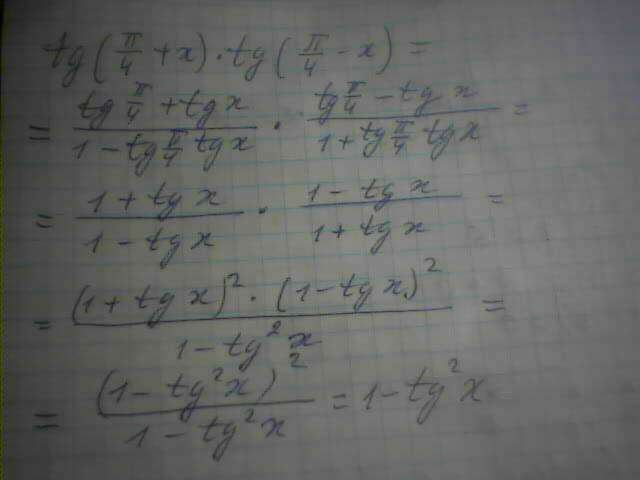 tg(π/4 + x) · tg(π/4 - x) =
= (tg π/4 + tg x)/(1 - tg π/4 tg x) · (tg π/4 - tg x)/(1 + tg π/4 tg x) =
= (1 + tg x)/(1 - tg x) · (1 - tg x)/(1 + tg x) =
= ((1 + tg x)² · (1 - tg x)²)/(1 - tg² x) =
= (1 - tg² x)²/(1 - tg² x) = 1 - tg² x